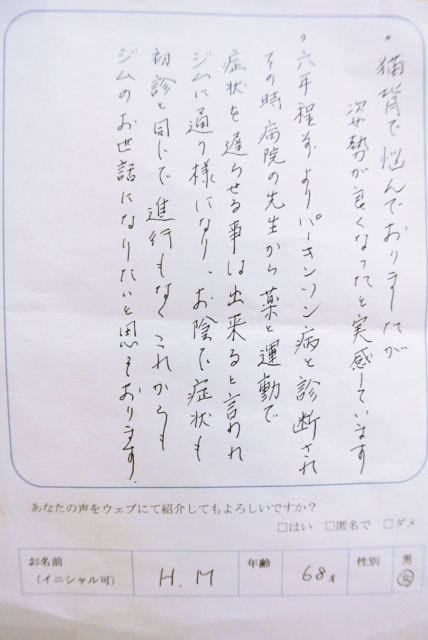 ・猫背で悩んでおりましたが
姿勢が良くなったと実感しています
・六年程前よりパーキンソン病と診断され
その時病院の先生から薬と運動で
症状を遅らせる事は出来ると言われ
ジムに通う様になり、お陰で症状も
初診と同じで進行もなくこれからも
ジムのお世話になりたいと思っております.
あなたの声をウェブにて紹介してもよろしいですか？
□はい □匿名で □ダメ
お名前
（イニシャル可）
H.M
年齢
68才
性別
男
女